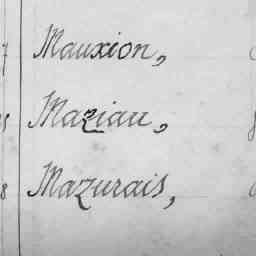 7 Mauxion,
Maziau,
8 Mazurais,